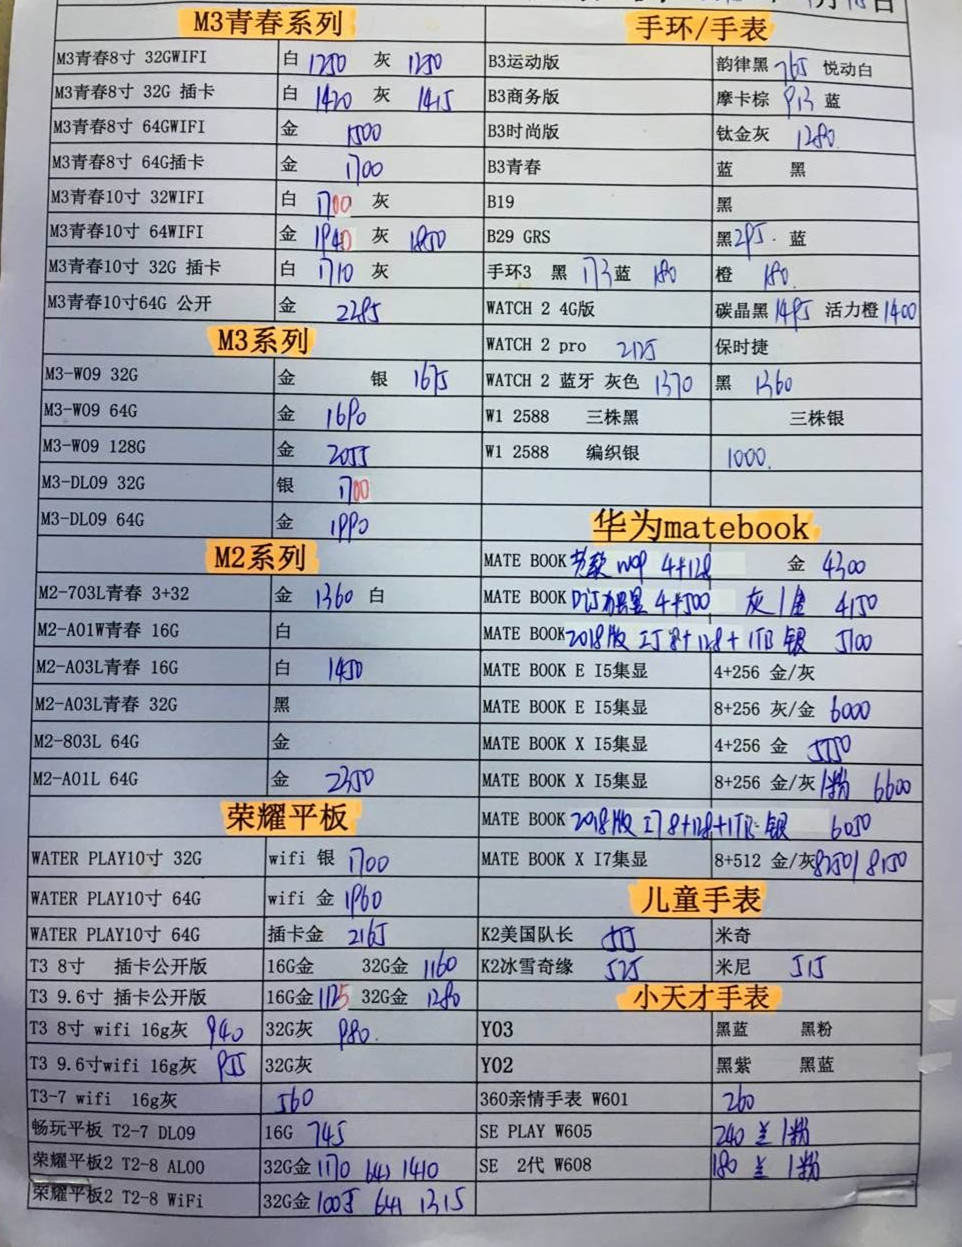 月18日
M3青春系列
M3青春8寸 32GWIFI 白 1250 灰 1250
M3青春8寸 32G 插卡 白 1420 灰 1415
M3青春8寸 64GWIFI 金 1500
M3青春8寸 64G插卡 金 1700
M3青春10寸 32WIFI 白 1700 灰
M3青春10寸 64WIFI 金 1940 灰 1850
M3青春10寸 32G 插卡 白 1710 灰
M3青春10寸64G 公开 金 2285
M3系列
M3-W09 32G 金 银 1675
M3-W09 64G 金 1690
M3-W09 128G 金 2055
M3-DL09 32G 银 1700
M3-DL09 64G 金 1990
M2系列
M2-703L青春 3+32 金 1360 白
M2-A01W青春 16G 白
M2-A03L青春 16G 白 1450
M2-A03L青春 32G 黑
M2-803L 64G 金
M2-A01L 64G 金 2350
荣耀平板
WATER PLAY10寸 32G wifi 银 1700
WATER PLAY10寸 64G wifi 金 1960
WATER PLAY10寸 64G 插卡金 2165
T3 8寸 插卡公开版 16G金 32G金 1160
T3 9.6寸 插卡公开版 16G金 1125 32G金 1280
T3 8寸 wifi 16g灰 940 32G灰 980
T3 9.6寸wifi 16g灰 955 32G灰
T3-7 wifi 16g灰 560
畅玩平板 T2-7 DL09 16G 745
荣耀平板2 T2-8 AL00 32G金 1170 64G 1410
荣耀平板2 T2-8 WiFi 32G金 1005 64G 1315
手环/手表
B3运动版 韵律黑 765 悦动白
B3商务版 摩卡棕 913 蓝
B3时尚版 钛金灰 1280
B3青春 蓝 黑
B19 黑
B29 GRS 黑 295 蓝
手环3 黑 173 蓝 180 橙 180
WATCH 2 4G版 碳晶黑 1495 活力橙 1400
WATCH 2 pro 2125 保时捷
WATCH 2 蓝牙 灰色 1370 黑 1360
W1 2588 三株黑 三株银
W1 2588 编织银 1000
华为matebook
MATE BOOK 4+128 金 4300
MATE BOOK 4+500 灰/金 4150
MATE BOOK 2018版 I5 8+128+1TB 银 5100
MATE BOOK E I5集显 4+256 金/灰
MATE BOOK E I5集显 8+256 灰/金 6000
MATE BOOK X I5集显 4+256 金 5550
MATE BOOK X I5集显 8+256 金/灰/粉 6600
MATE BOOK 2018版 I7 8+128+1TB 银 6050
MATE BOOK X I7集显 8+512 金/灰 8250/8150
儿童手表
K2美国队长 555 米奇
K2冰雪奇缘 525 米尼 515
小天才手表
Y03 黑蓝 黑粉
Y02 黑紫 黑蓝
360亲情手表 W601 260
SE PLAY W605 240 兰/粉
SE 2代 W608 180 兰/粉